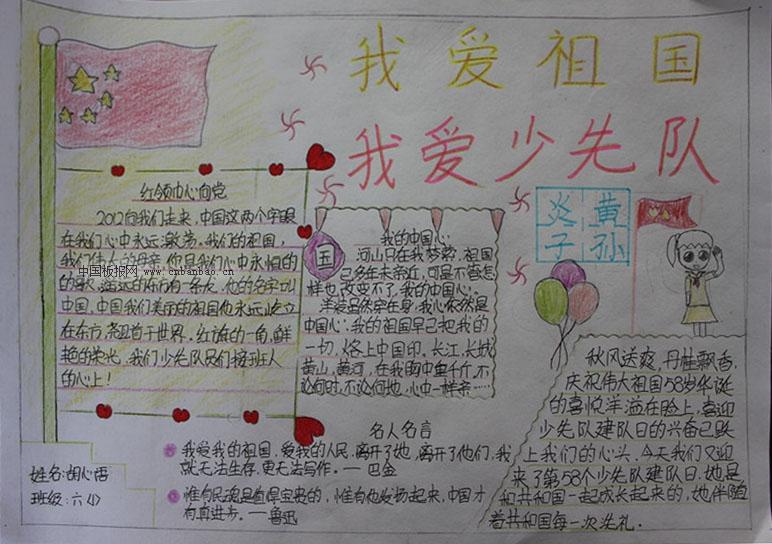 我爱祖国
我爱少先队
红领巾心向党
2012向我们走来，中国这两个字眼
在我们心中永远激荡。我们的祖国，
我们伟大的母亲，你是我们心中永恒的
的歌。遥远的东方有一条龙，他的名字叫
中国，中国我们美丽的祖国他永远屹立
在东方，翘首于世界。红旗的一角，鲜
艳的荣光，我们少先队员们接班人
的心上！
中国板报网 www.cnbanbao.cn
国
我的中国心
河山只在我梦萦，祖国
已多年未亲近，可是不管怎
样也改变不了，我的中国心。
洋装虽然穿在身，我心依然是
中国心；我的祖国早已把我的
一切，烙上中国印。长江，长城
黄山，黄河，在我胸中重千斤，不
论何时，不论何地，心中一样亲……
炎黄
子孙
秋风送爽，丹桂飘香，
庆祝伟大祖国58岁华诞
的喜悦洋溢在脸上，喜迎
少先队建队日的兴奋已跃
上我们的心头，今天我们又迎
来了第58个少先队建队日，她是
和共和国一起成长起来的，她伴随
着共和国每一次洗礼．
名人名言
我爱我的祖国，爱我的人民，离开了她，离开了他们，我
就无法生存，更无法写作。——巴金
惟有民魂是值得宝贵的，惟有他发扬起来，中国才
有真进步。——鲁迅
姓名：胡心语
班级：六（1）